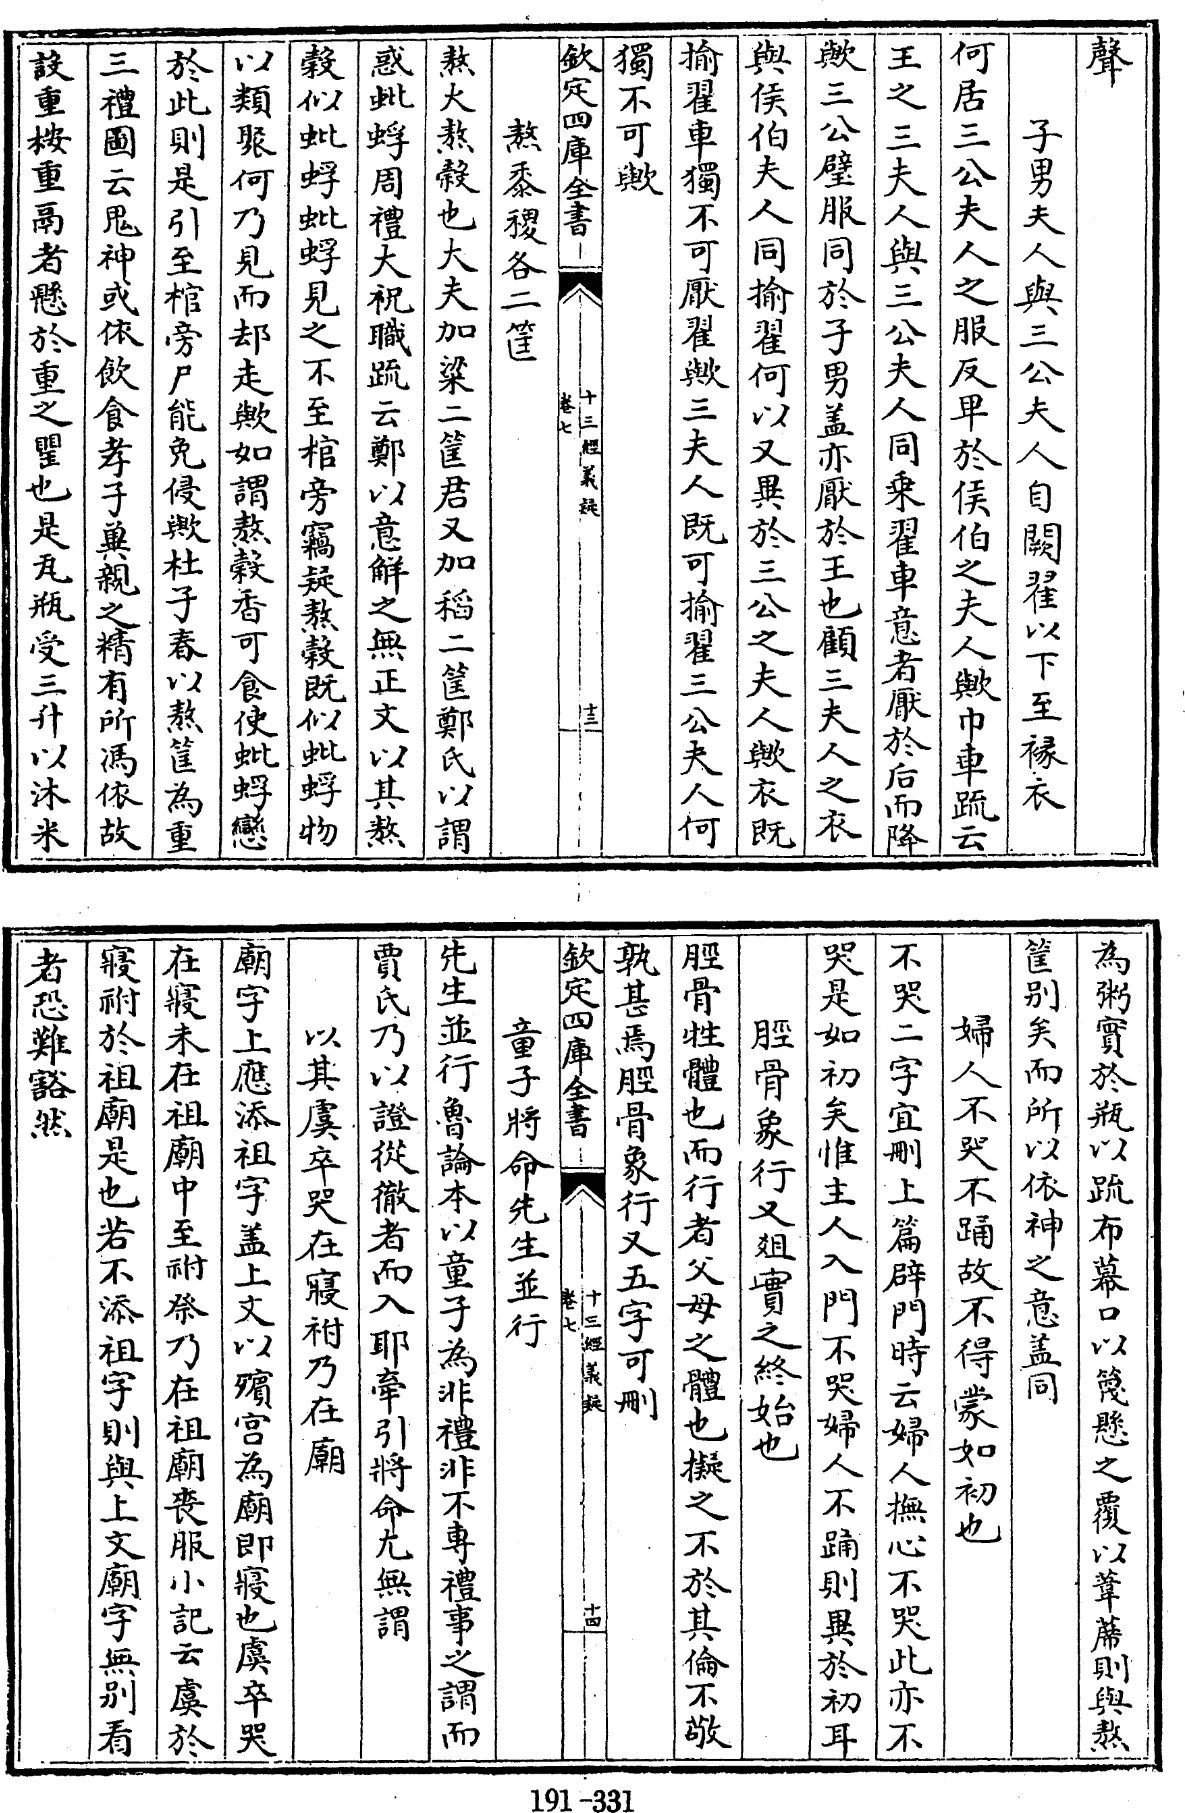 聲
子男夫人與三公夫人自闕翟以下至褖衣
何居三公夫人之服反卑於侯伯之夫人歟巾車疏云
王之三夫人與三公夫人同乘翟車意者厭於后而降
歟三公璧服同於子男盖亦厭於王也顧三夫人之衣
與侯伯夫人同揄翟何以又異於三公之夫人歟衣既
揄翟車獨不可厭翟歟三夫人既可揄翟三公夫人何
獨不可歟
欽定四庫全書
十三經義疑
卷七
十三
熬黍稷各二筐
熬火熬穀也大夫加粱二筐君又加稻二筐鄭氏以謂
惑蚍蜉周禮大祝職疏云鄭以意解之無正文以其熬
穀似蚍蜉蚍蜉見之不至棺旁竊疑熬穀既似蚍蜉物
以類聚何乃見而却走歟如謂熬穀香可食使蚍蜉戀
於此則是引至棺旁尸能免侵歟杜子春以熬筐為重
三禮圖云鬼神或依飲食孝子兾親之精有所馮依故
設重按重鬲者懸於重之甖也是瓦瓶受三升以沐米
為粥實於瓶以疏布幕口以篾懸之覆以葦蓆則與熬
筐别矣而所以依神之意盖同
婦人不哭不踊故不得蒙如初也
不哭二字宜刪上篇辟門時云婦人撫心不哭此亦不
哭是如初矣惟主人入門不哭婦人不踊則異於初耳
脛骨象行又俎實之終始也
脛骨牲體也而行者父母之體也擬之不於其倫不敬
孰甚焉脛骨象行又五字可刪
欽定四庫全書
十三經義疑
卷七
十四
童子將命先生並行
先生並行魯論本以童子為非禮非不專禮事之謂而
賈氏乃以證從徹者而入耶牽引將命尤無謂
以其虞卒哭在寢祔乃在廟
廟字上應添祖字盖上文以殯宫為廟即寢也虞卒哭
在寢未在祖廟中至祔祭乃在祖廟喪服小記云虞於
寢祔於祖廟是也若不添祖字則與上文廟字無别看
者恐難豁然
191-331